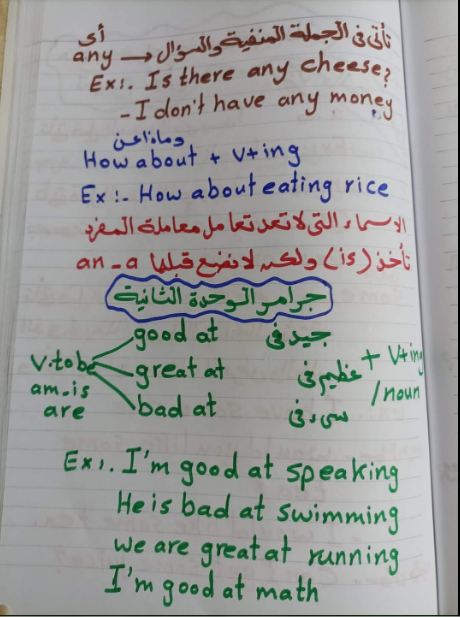 أى
any → تأتى فى الجملة المنفية والسؤال
Ex:. Is there any cheese?
- I don't have any money
وماذا عن
How about + V+ing
Ex :- How about eating rice
الاسماء التى لا تعد تعامل معاملة المفرد
تأخذ (is) ولكن لا نضع قبلها an - a
جرامر الوحدة الثانية
good at جيد فى
V.to be great at عظيم فى + V+ing
am - is /noun
are bad at سىء فى
Ex:. I'm good at speaking
He is bad at swimming
we are great at running
I'm good at math